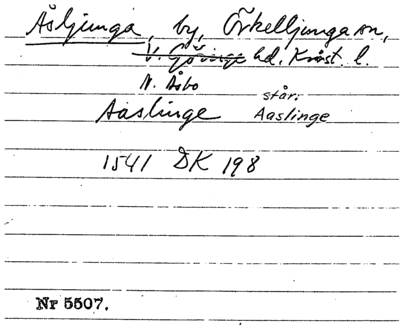 Åsljunga, by, Örkelljunga sn,
V. Göinge hd, Krist. l.
N. Åsbo
står:
Aaslinge Aaslinge
1541 DK 198
Nr 5507.